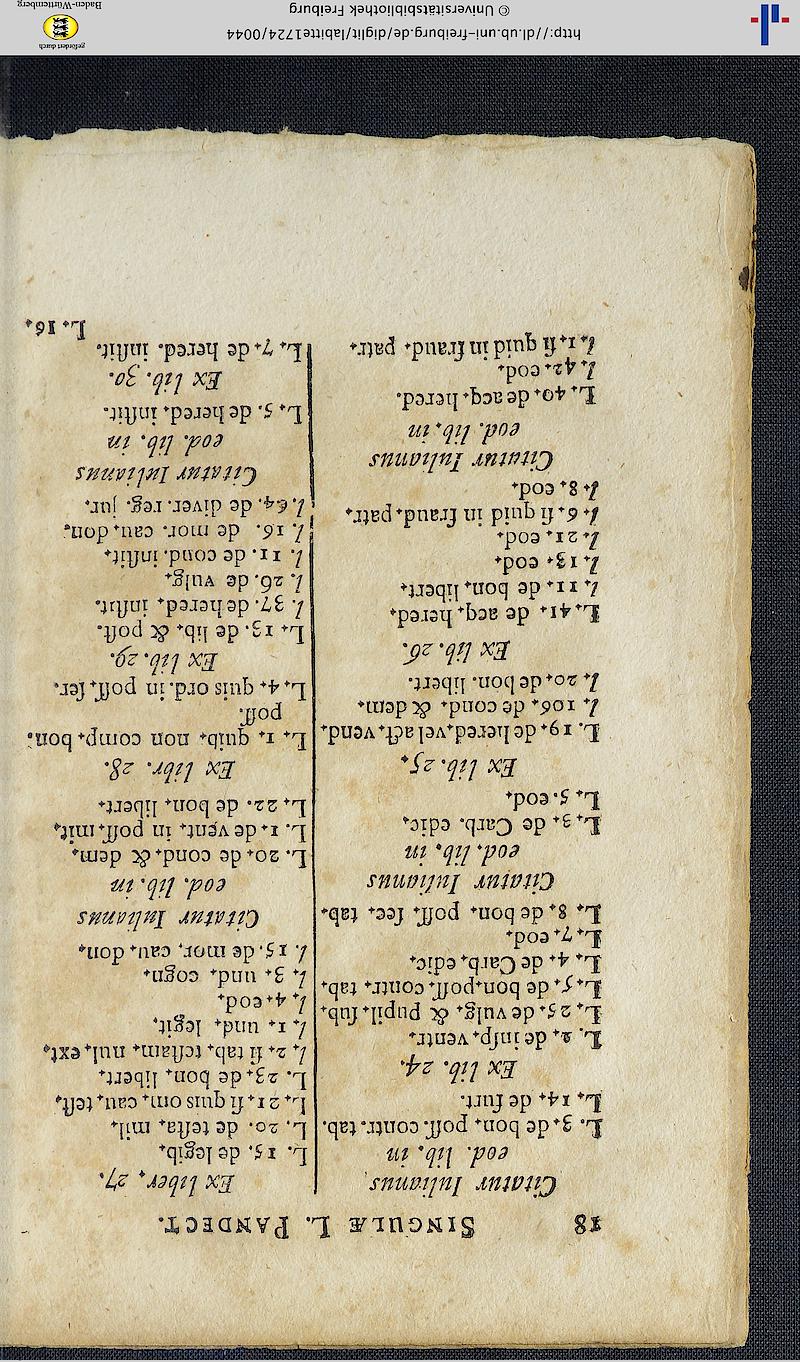 18 SINGULÆ L. PANDECT.
Citatur Iulianus
eod. lib. in
L. 3. de bon. poss. contr. tab.
L. 14. de furt.
Ex lib. 24.
L. 2. de insp. ventr.
L. 25. de vulg. & pupil. sub.
L. 5. de bon. poss. contr. tab.
L. 4. de Carb. edic.
L. 7. eod.
L. 8. de bon. poss. sec. tab.
Citatur Iulianus
eod. lib. in
L. 3. de Carb. edic.
L. 5. eod.
Ex lib. 25.
L. 19. de hered. vel act. vend.
l. 106. de cond. & dem.
l. 20. de bon. libert.
Ex lib. 26.
L. 41. de acq. hered.
l. 11. de bon. libert.
l. 13. eod.
l. 21. eod.
l. 6. si quid in fraud. patr.
l. 8. eod.
Citatur Iulianus
eod. lib. in
L. 40. de acq. hered.
l. 42. eod.
l. 1. si quid in fraud. patr.
Ex liber. 27.
L. 15. de legib.
L. 20. de testa. mil.
L. 21. si quis om. cau. test.
L. 23. de bon. libert.
l. 2. si tab. testam. nul. ext.
l. 1. und. legit.
l. 4. eod.
l. 3. und. cogn.
l. 15. de mor. cau. don.
Citatur Iulianus
eod. lib. in
L. 20. de cond. & dem.
L. 1. de vent. in poss. mit.
L. 22. de bon. libert.
Ex libr. 28.
L. 1. quib. non comp. bon.
poss.
L. 4. quis ord. in poss. ser.
Ex lib. 29.
L. 13. de lib. & post.
l. 37. de hered. instit.
l. 26. de vulg.
l. 11. de cond. instit.
l. 16. de mor. cau. don.
l. 64. de diver. reg. jur.
Citatur Iulianus
eod. lib. in
L. 5. de hered. instit.
Ex lib. 30.
L. 7. de hered. instit.
L. 16.
http://dl.ub.uni-freiburg.de/diglit/labitte1724/0044
© Universitätsbibliothek Freiburg
gefördert durch
Baden-Württemberg